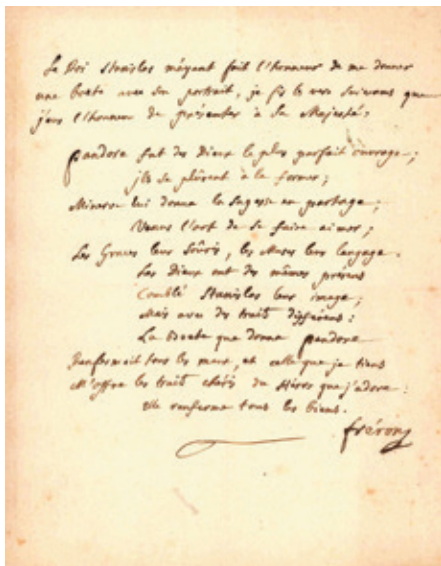 Le Roi Stanislas m'ayant fait l'honneur de me donner
une boete avec son portrait, je fis les vers suivans que
j'eus l'honneur de présenter à Sa Majesté.
Pandore fut des Dieux le plus parfait ouvrage;
ils se plûrent à la former;
Minerve lui donna la sagesse en partage;
Venus l'art de se faire aimer;
Les Graces leur souris, les Muses leur langage.
Les Dieux ont des mêmes présens
Comblé Stanislas leur image;
Mais avec des traits différens:
La Boete que donna Pandore
Renfermoit tous les maux, et celle que je tiens
M'offre les traits chéris du Héros que j'adore:
elle renferme tous les biens.
fréron